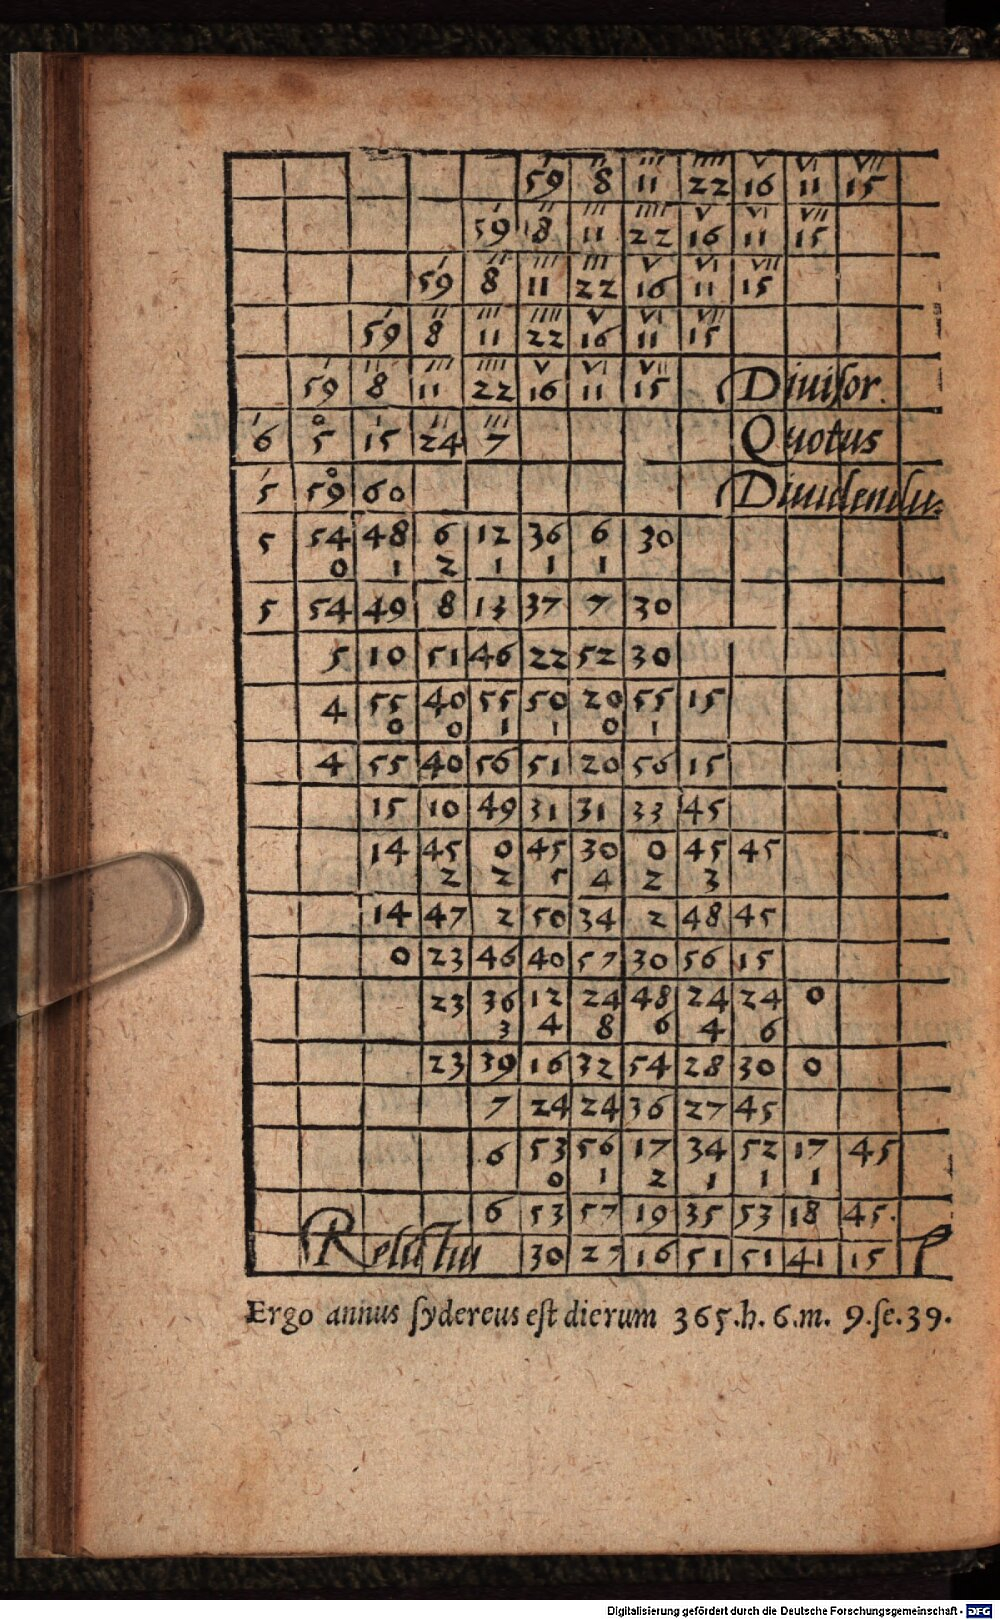 59 8 11 22 16 11 15
59 8 11 22 16 11 15
59 8 11 22 16 11 15
59 8 11 22 16 11 15
59 8 11 22 16 11 15 Diuiſor.
6 5 15 24 7 Quotus
5 59 60 Diuidendu
5 54 48 6 12 36 6 30
0 1 2 1 1 1
5 54 49 8 13 37 7 30
5 10 51 46 22 52 30
4 55 40 55 50 20 55 15
0 0 1 1 0 1
4 55 40 56 51 20 56 15
15 10 49 31 31 33 45
14 45 0 45 30 0 45 45
2 2 5 4 2 3
14 47 2 50 34 2 48 45
0 23 46 40 57 30 56 15
23 36 12 24 48 24 24 0
3 4 8 6 4 6
23 39 16 32 54 28 30 0
7 24 24 36 27 45
6 53 56 17 34 52 17 45
0 1 2 1 1 1
6 53 57 19 35 53 18 45.
30 27 16 51 51 41 15
Ergo annus ſydereus eſt dierum 365.h. 6.m. 9.ſe.39.
Digitalisierung gefördert durch die Deutsche Forschungsgemeinschaft - DFG